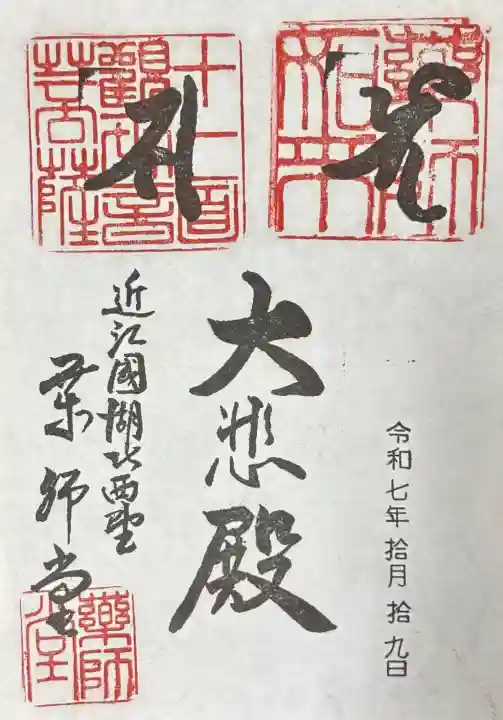 藥師
如來
令和七年 拾月 拾九日
大悲殿
十一面
觀世音
菩薩
近江國湖北西野
薬師堂
藥師
堂